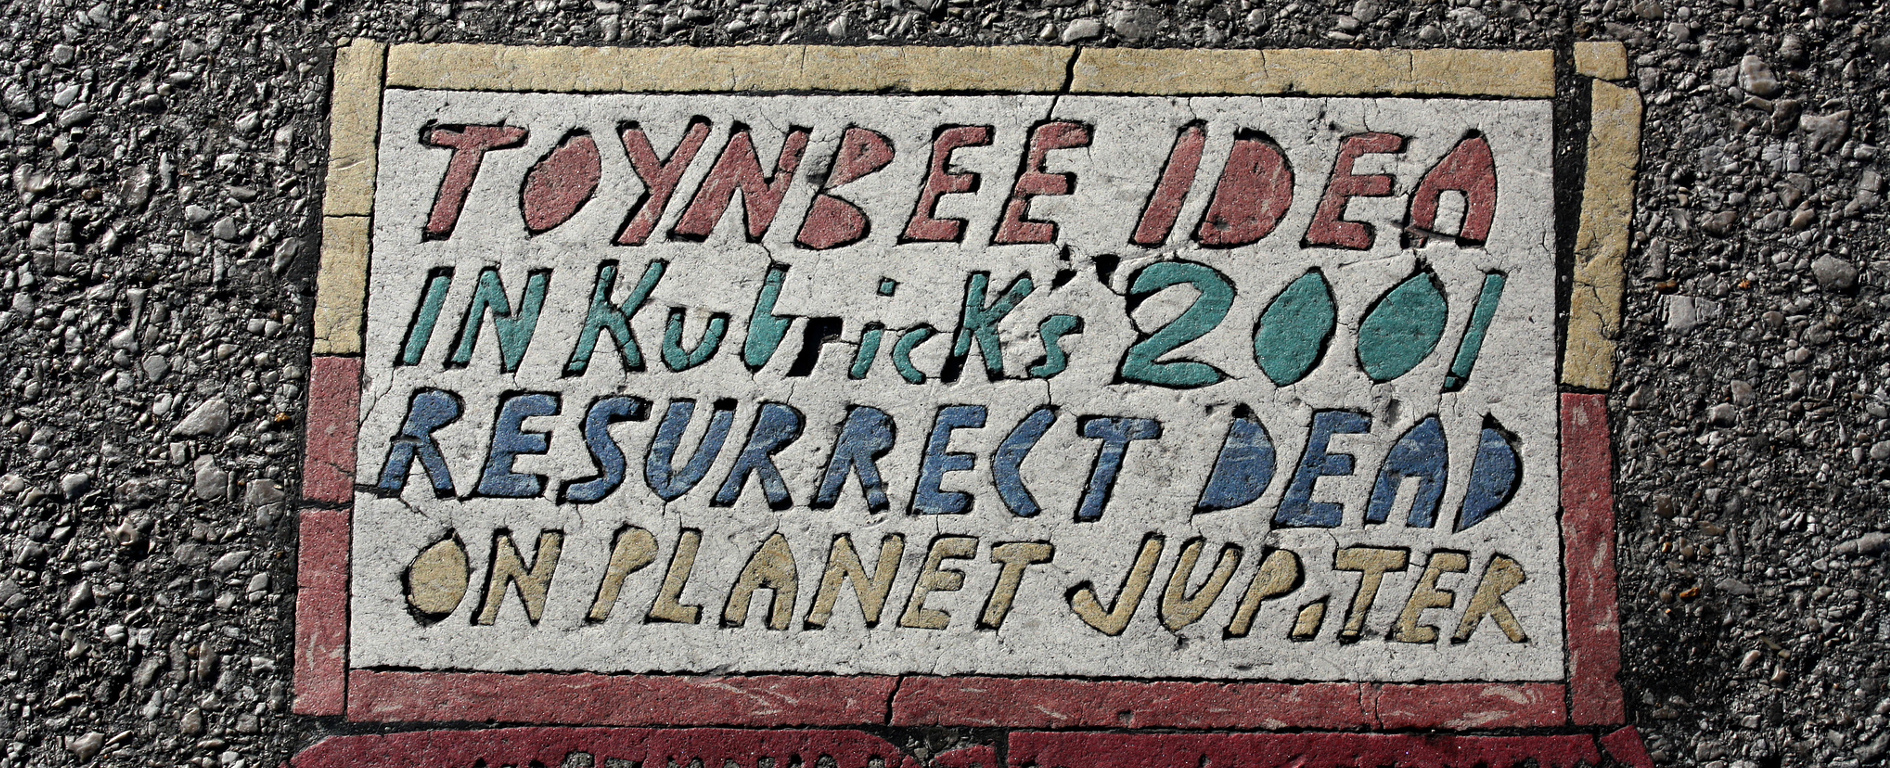 TOYNBEE IDEA
IN KubricK's 2001
RESURRECT DEAD
ON PLANET JUPiTER